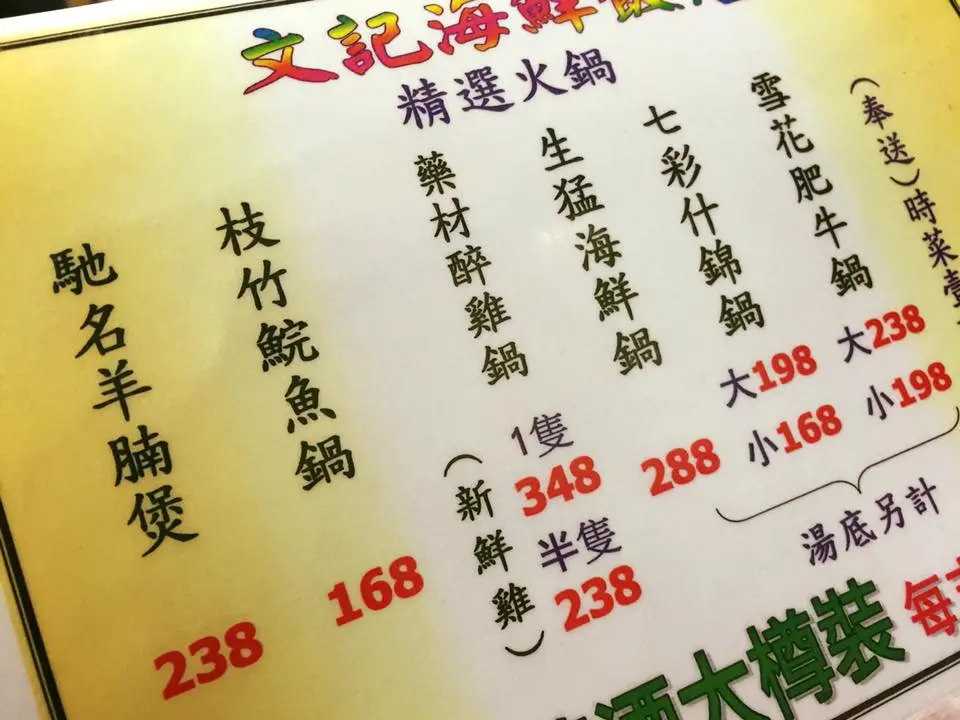 文記海鮮飯
精選火鍋
(奉送)時菜壹
雪花肥牛鍋
大238
小198
七彩什錦鍋
大198
小168
湯底另計
生猛海鮮鍋
288
藥材醉雞鍋
1隻
348
半隻
238
(新鮮雞)
枝竹鯇魚鍋
168
馳名羊腩煲
238
酒大樽裝
每